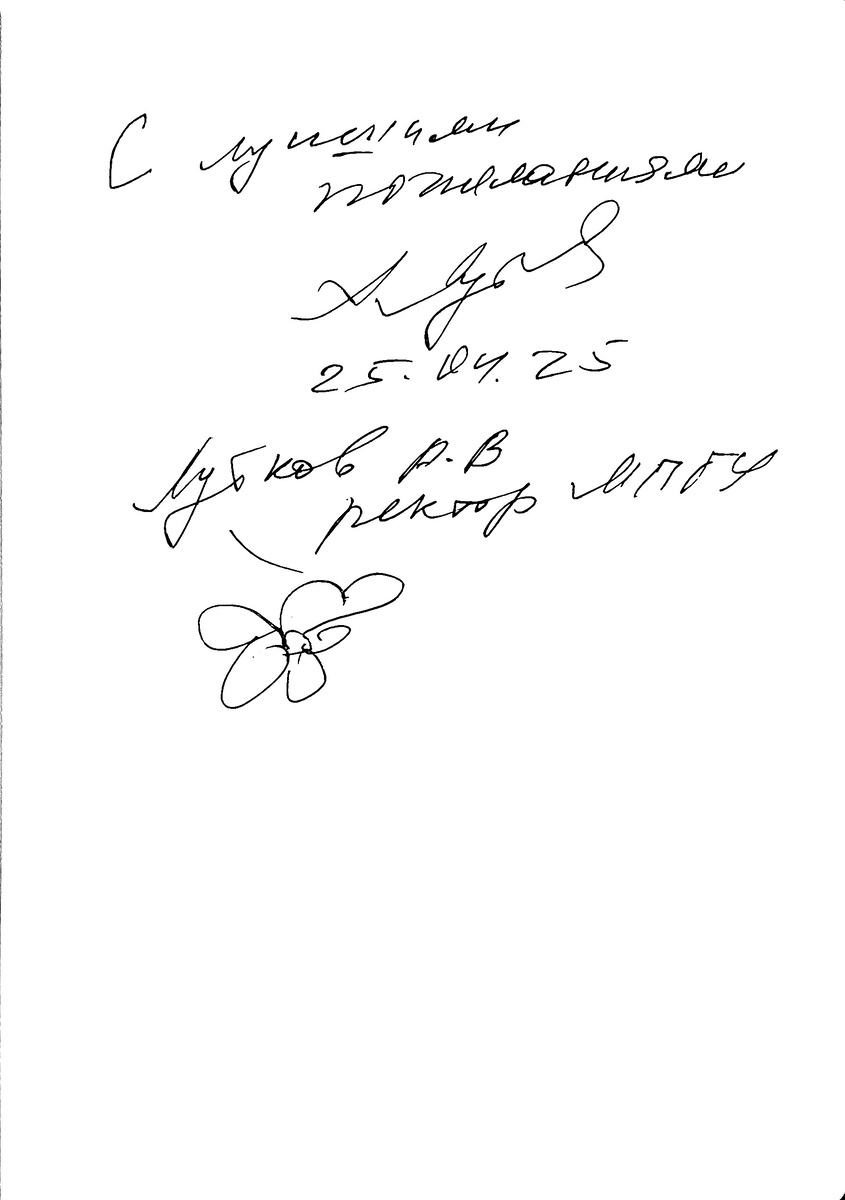 С лучшими
пожеланиями
25.04.25
Лубков А.В
ректор МПГУ